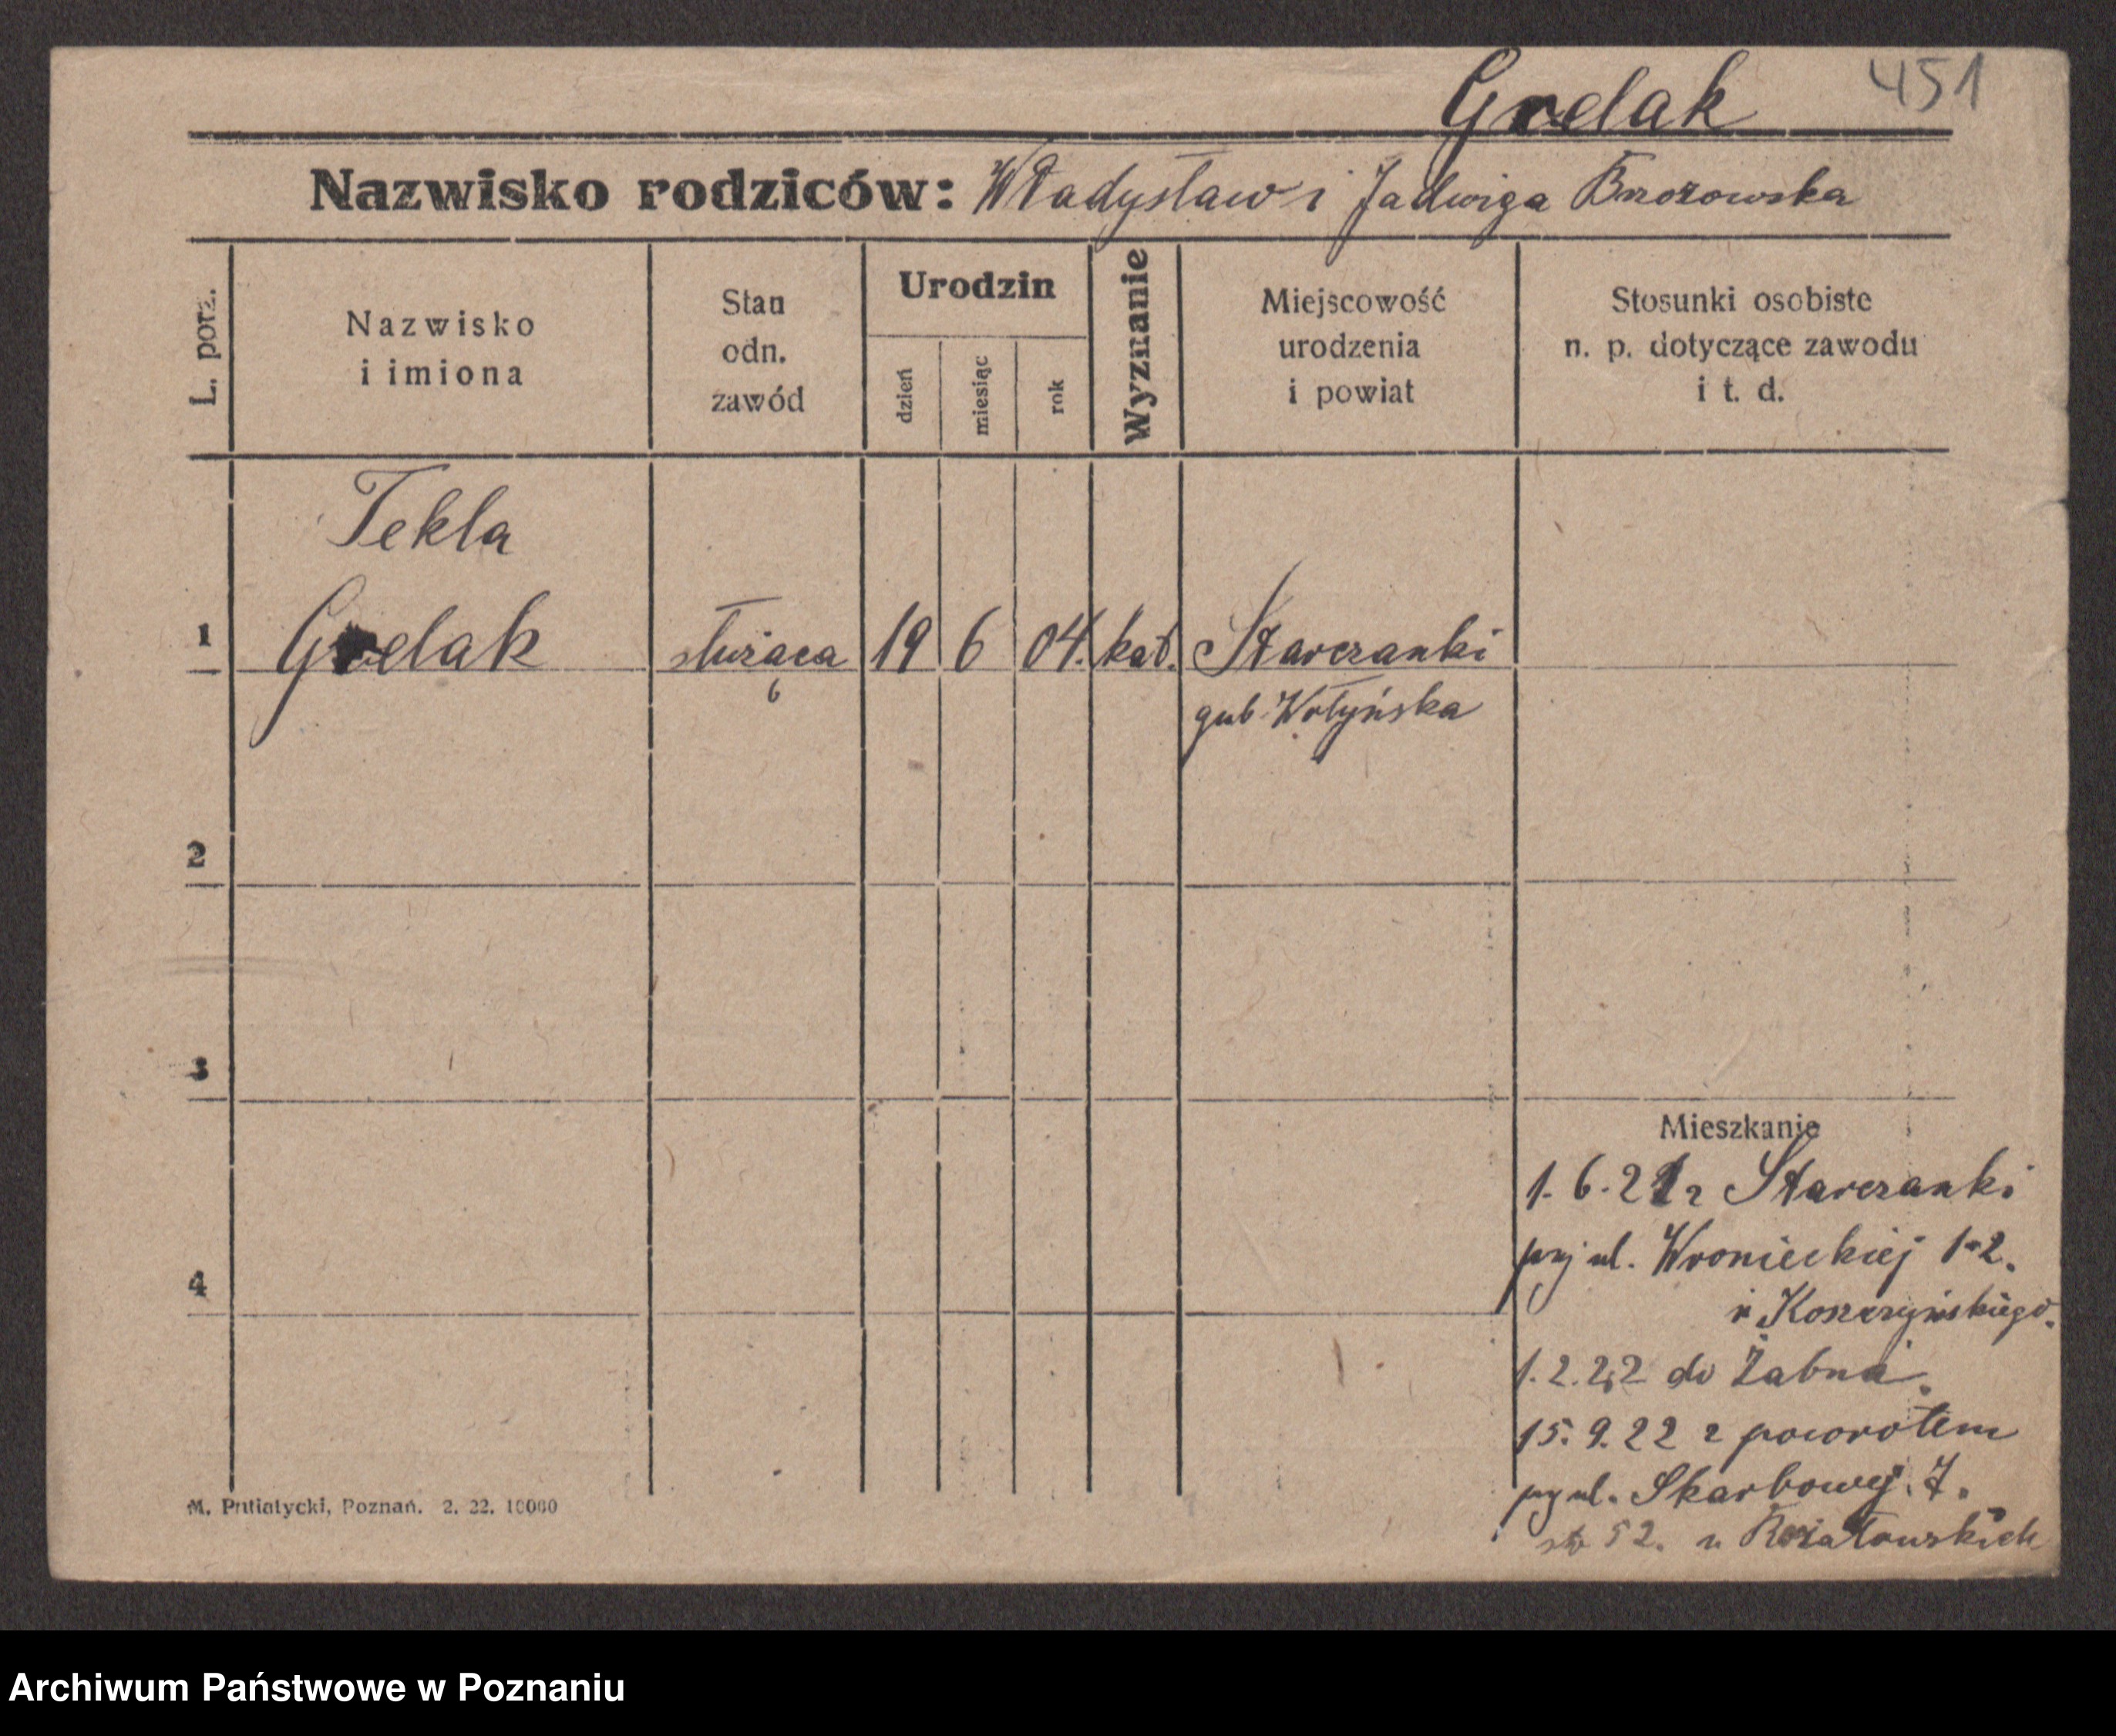 451
Grelak
Nazwisko rodziców: Władysław i Jadwiga Brzozowska
L. porz.
Nazwisko
i imiona
Stan
odn.
zawód
Urodzin
dzień
miesiąc
rok
Wyznanie
Miejscowość
urodzenia
i powiat
Stosunki osobiste
n. p. dotyczące zawodu
i t. d.
Tekla
1 Grelak służąca 19 6 04. kat. Starczanki
gub. Wołyńska
2
3
Mieszkanie
1. 6. 21 z Starczanki
przy ul. Wronieckiej 1-2.
4
1.2.22 do Żabna.
15.9.22 z powrotem
przy ul. Skarbowej. 7.
52. u
M. Putiatycki, Poznań. 2. 22. 10000
Archiwum Państwowe w Poznaniu